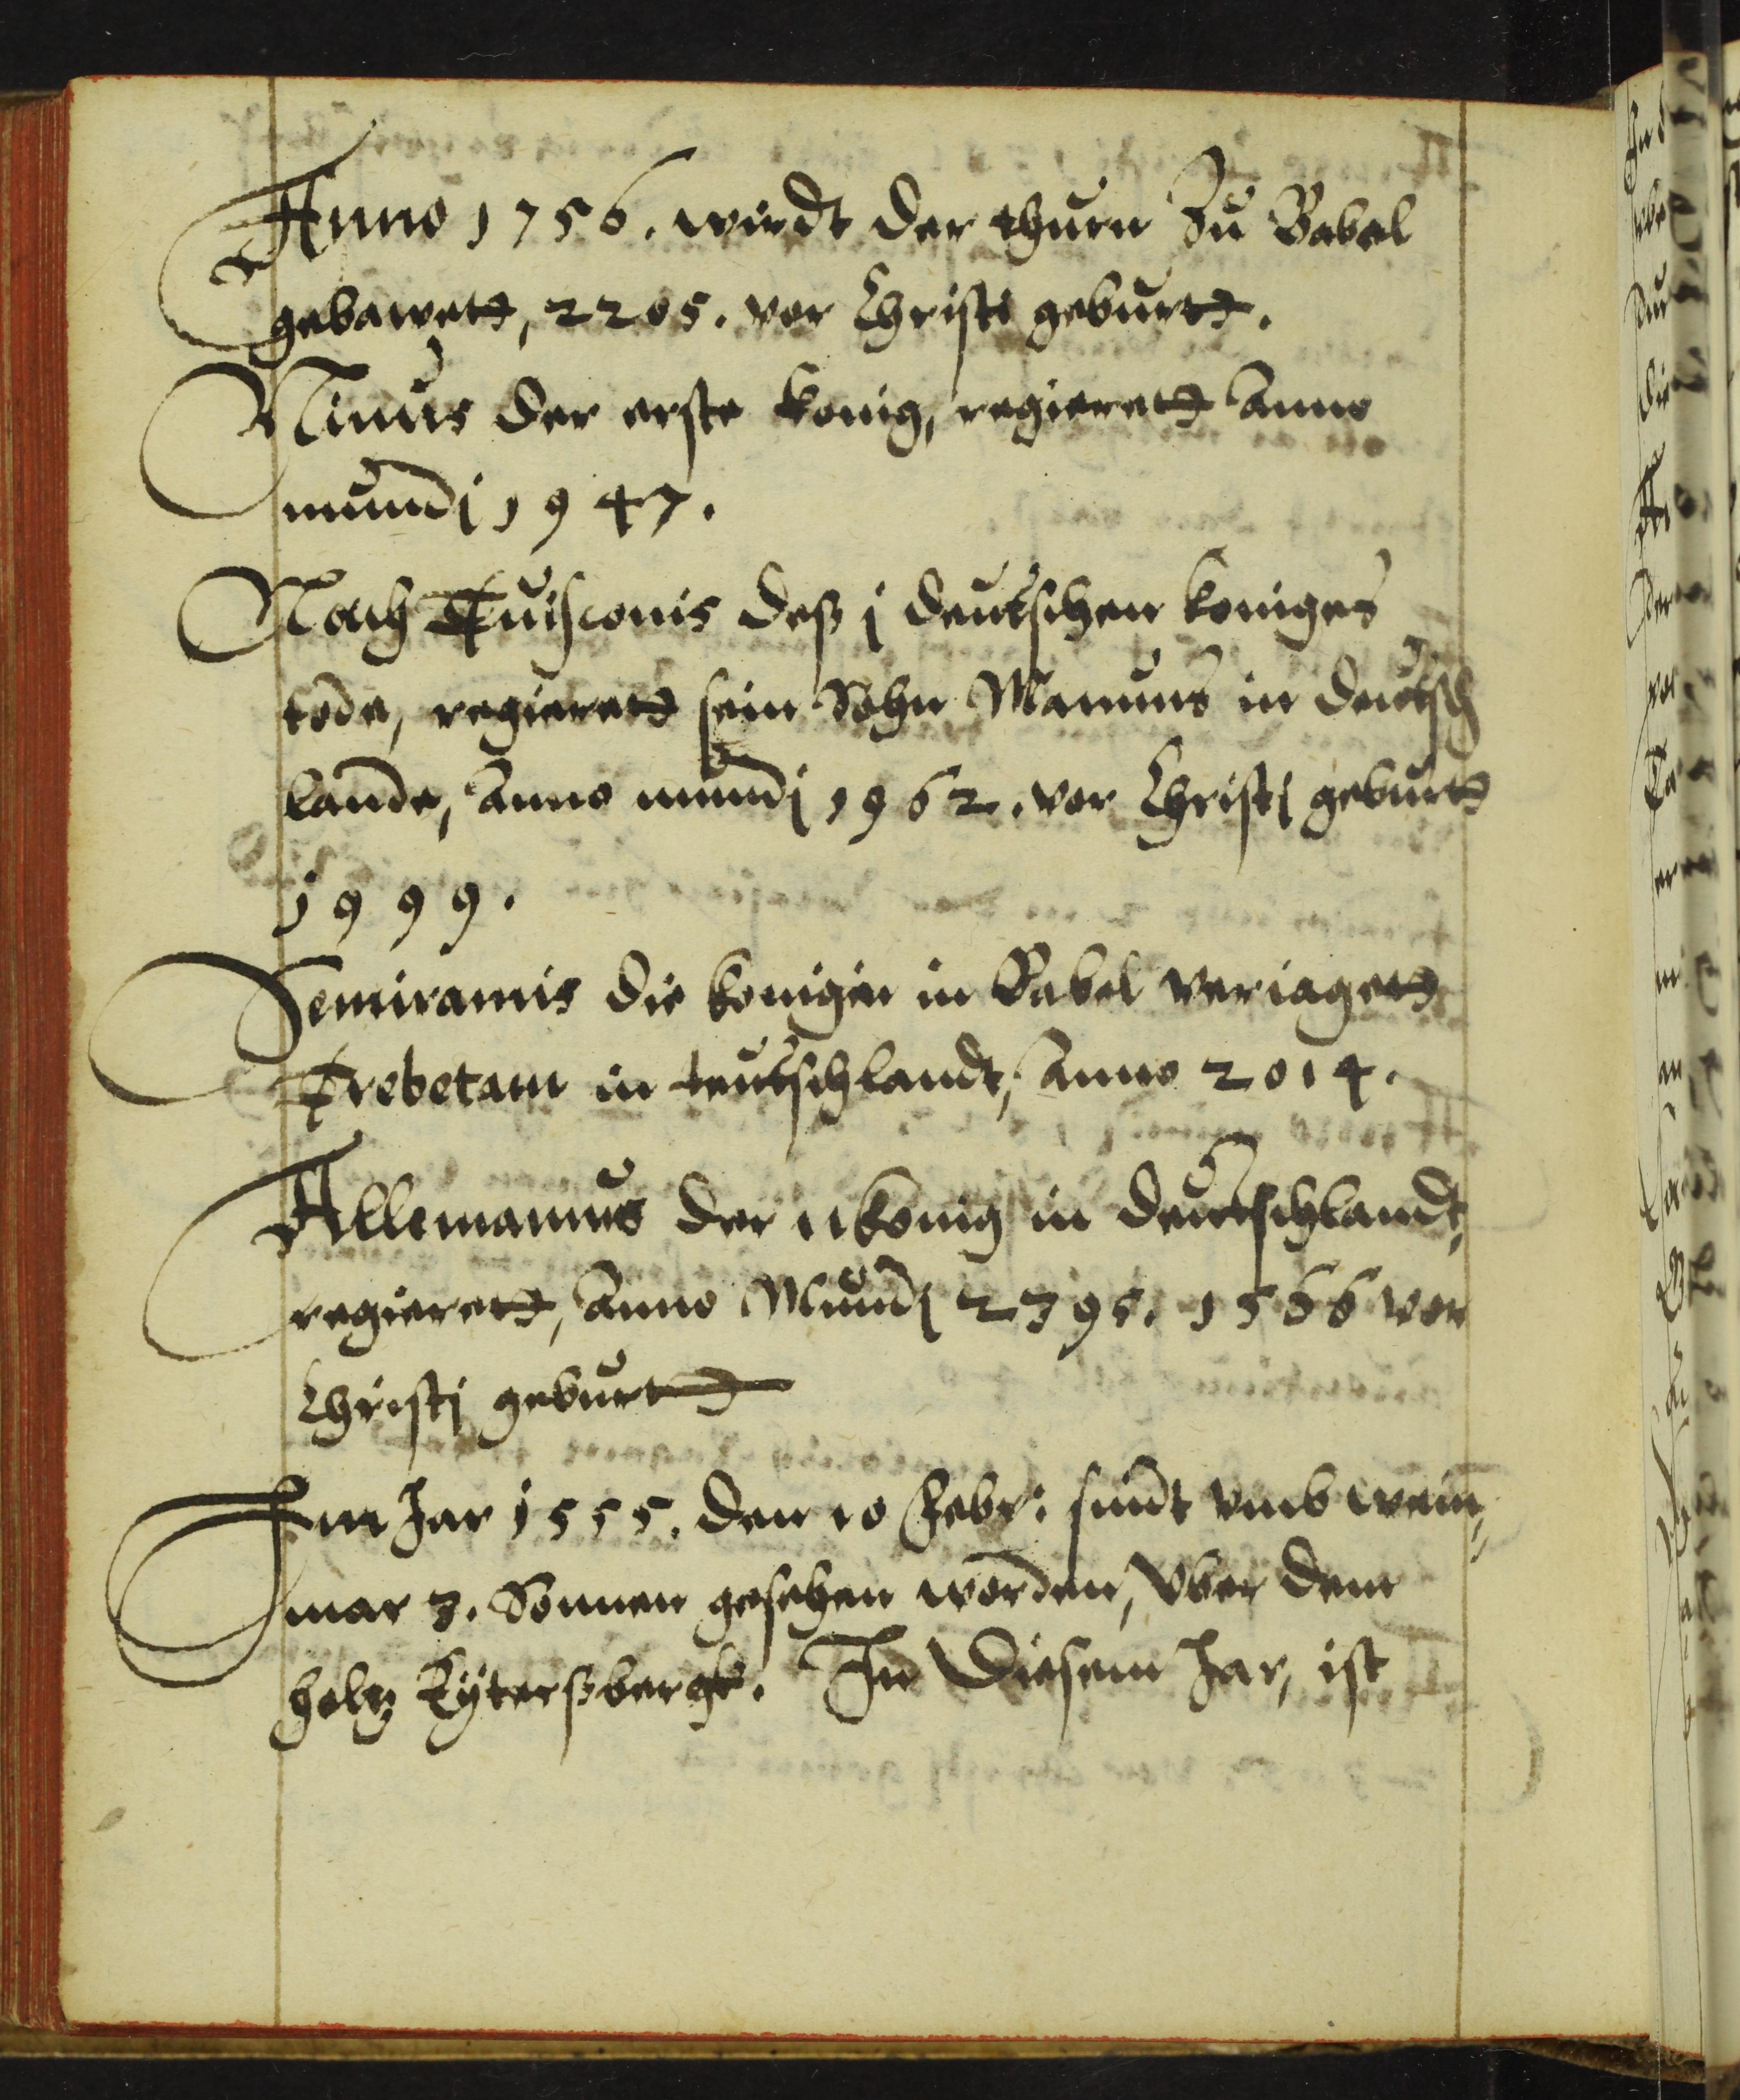 Anno 1756. wirdt der thurn Zu Babel
gebawett, 2205. vor Christi geburtt.
Ninus der erste konig, regierett Anno
mundj 1947.
Nach Tuisconis deß j deutschen koniges
tode, regierett sein Sohn Mannus in deutsch
lande, Anno mundj 1962. vor Christj geburtt
1999.
Semiramis die konigin in Babel veriagett
Trebetam in teutschlandt, Anno 2014.
Allemannus der 11 konig in deutschlandt,
regierett, Anno Mundj 2395. 1566 vor
Christj geburtt
Im Jar 1555. den 10 Febr: sindt vmb wein¸
mar 3. Sonnen gesehen worden, vber dem
holtz Eÿterßbergk. In Diesem Jar, ist